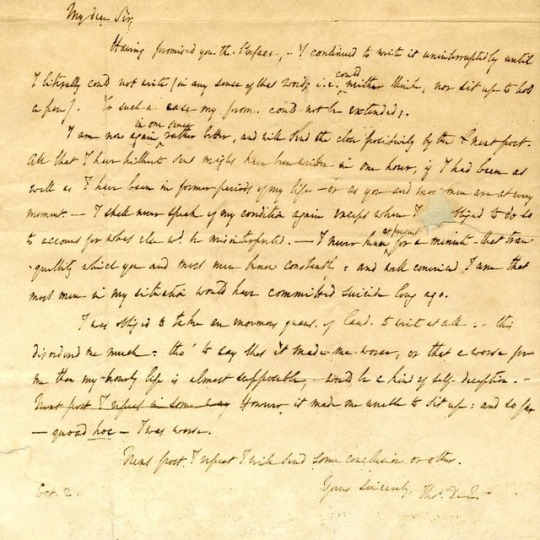 My dear Sir,
Having promised you the Paper, – I continued to write it uninterruptedly until
I literally could not write (in any sense of that word; i.e. could neither think, nor sit up to hold
a pen). To such a case my prom. could not be extended;
I am now again in one sense rather better, and will send the close positively by the next post.
All that I have hitherto sent might have been written in one hour, if I had been as
well as I have been in former periods of my life – or as you and most men are at every
moment. – I shall never speak of my condition again except when I obliged to do so
to account for what else wd. be misinterpreted. – I never have for a minute that tran
quillity which you and most men have constantly: and well convinced I am that
most men in my situation would have committed suicide long ago.
I was obliged to take an enormous quant. of laud. to write at all: – this
disordered me much: tho' to say that it made me worse, or that a worse for
me than my hourly life is almost supposable, would be a kind of self-deception. –
Next post I repeat in some way However it made me unable to sit up: and so far
– quoad hoc – I was worse.
Next post I repeat I will send some conclusion or other.
Yours sincerely, Thos. De Q.
Oct. 2.